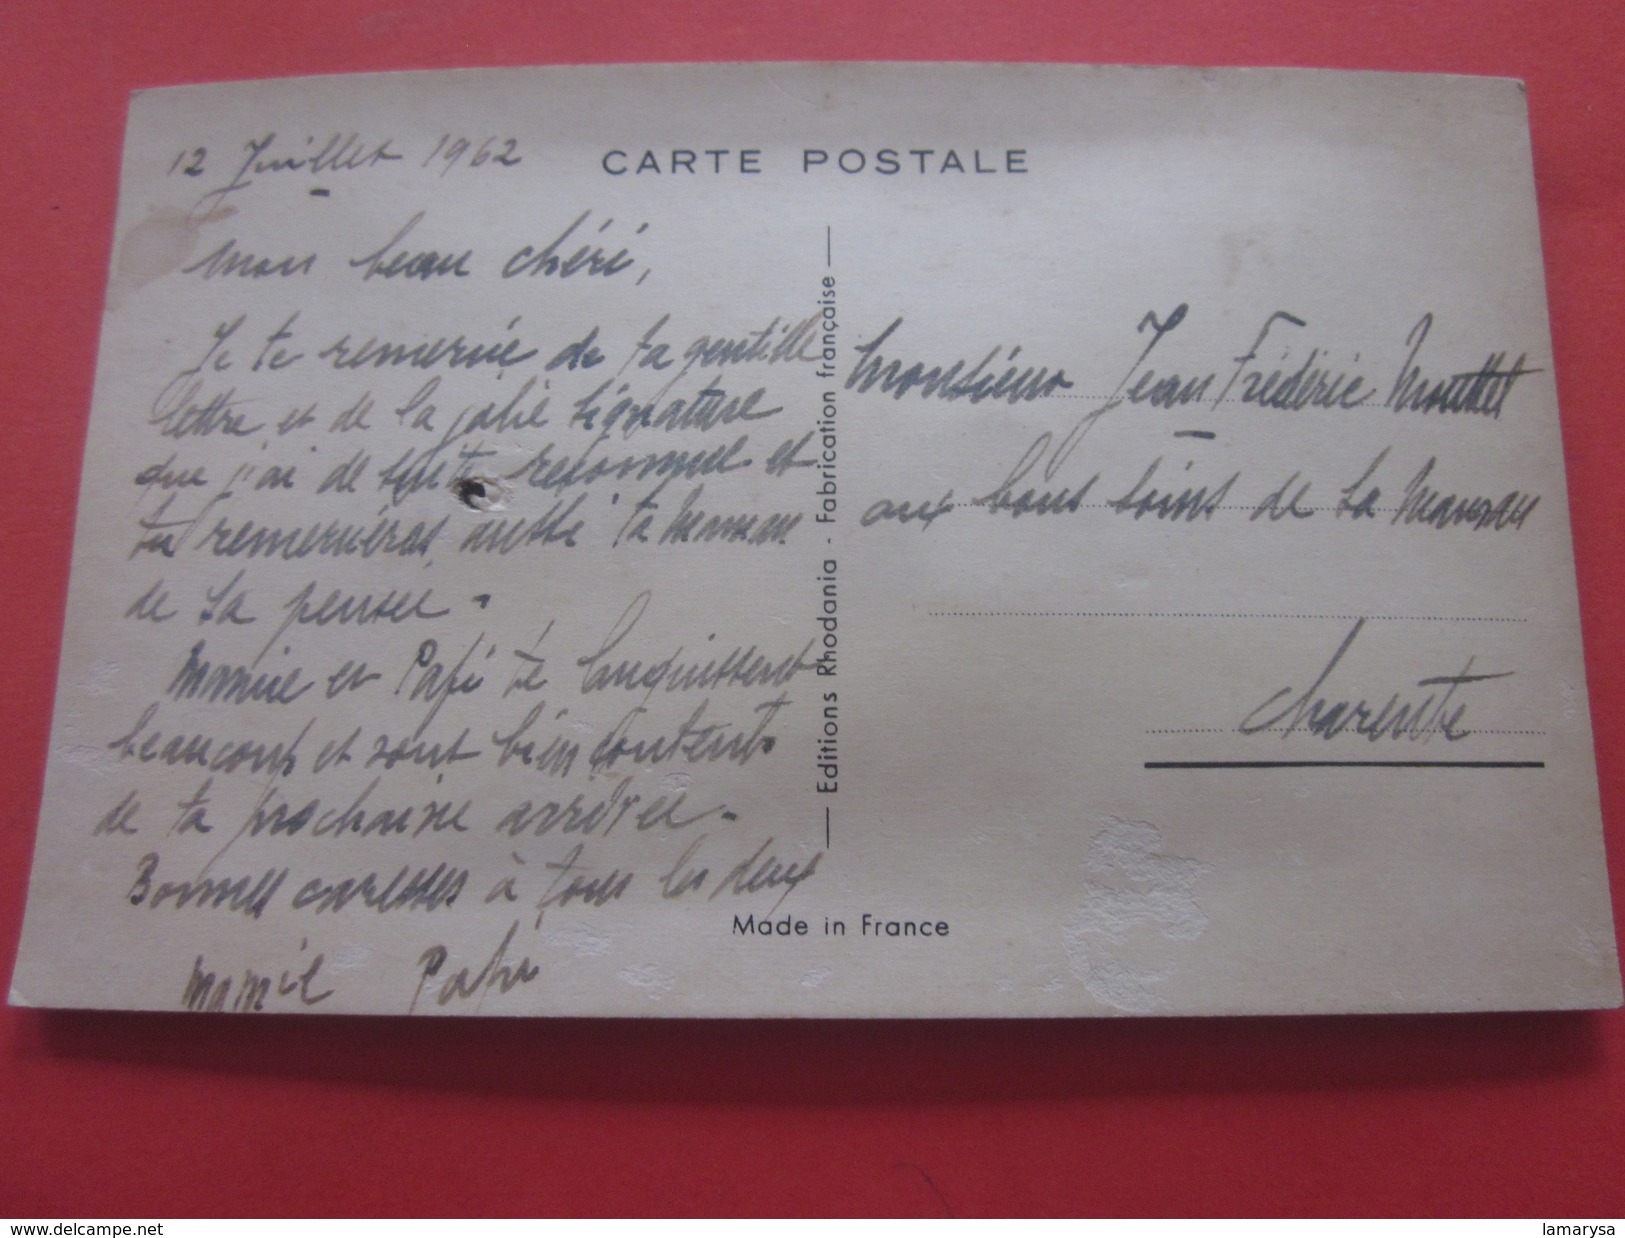 12 Juillet 1962
CARTE POSTALE
mon beau chéri,
Je te remercie de ta gentille
lettre et de la jolie signature
que j'ai de suite reconnue et
tu remercieras aussi ta maman
de sa pensée.
Mamie et Papi te languissent
beaucoup et sont bien contents
de ta prochaine arrivée.
Bonnes caresses à tous les deux
Mamie Papi
Editions Rhodania - Fabrication française
Monsieur Jean Frédéric Mouttet
aux bons soins de sa Maman
Charente
Made in France
delcampe.net
lamarysa